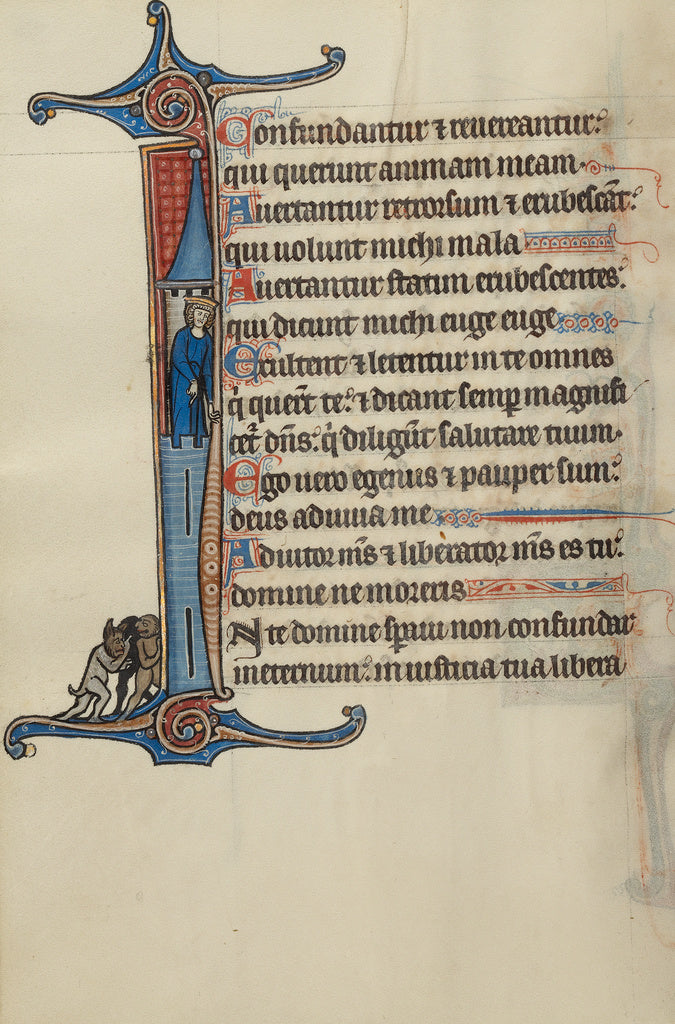 Confundantur ⁊ reuereantur:
qui querunt animam meam.
Auertantur retrorsum ⁊ erubescāt:
qui uolunt michi mala
Auertantur statim erubescentes:
qui dicunt michi euge euge
Exultent ⁊ letentur in te omnes
q̇ querūt te: ⁊ dicant semp magnifi
cet̄ dn̄s: q̇ diligūt salutare tuum.
Ego uero egenus ⁊ pauper sum:
deus adiuua me
Adiutor m̄s ⁊ liberator m̄s es tu:
domine ne moreris
In te domine sꝑaui non confundar
in eternum: in iusticia tua libera